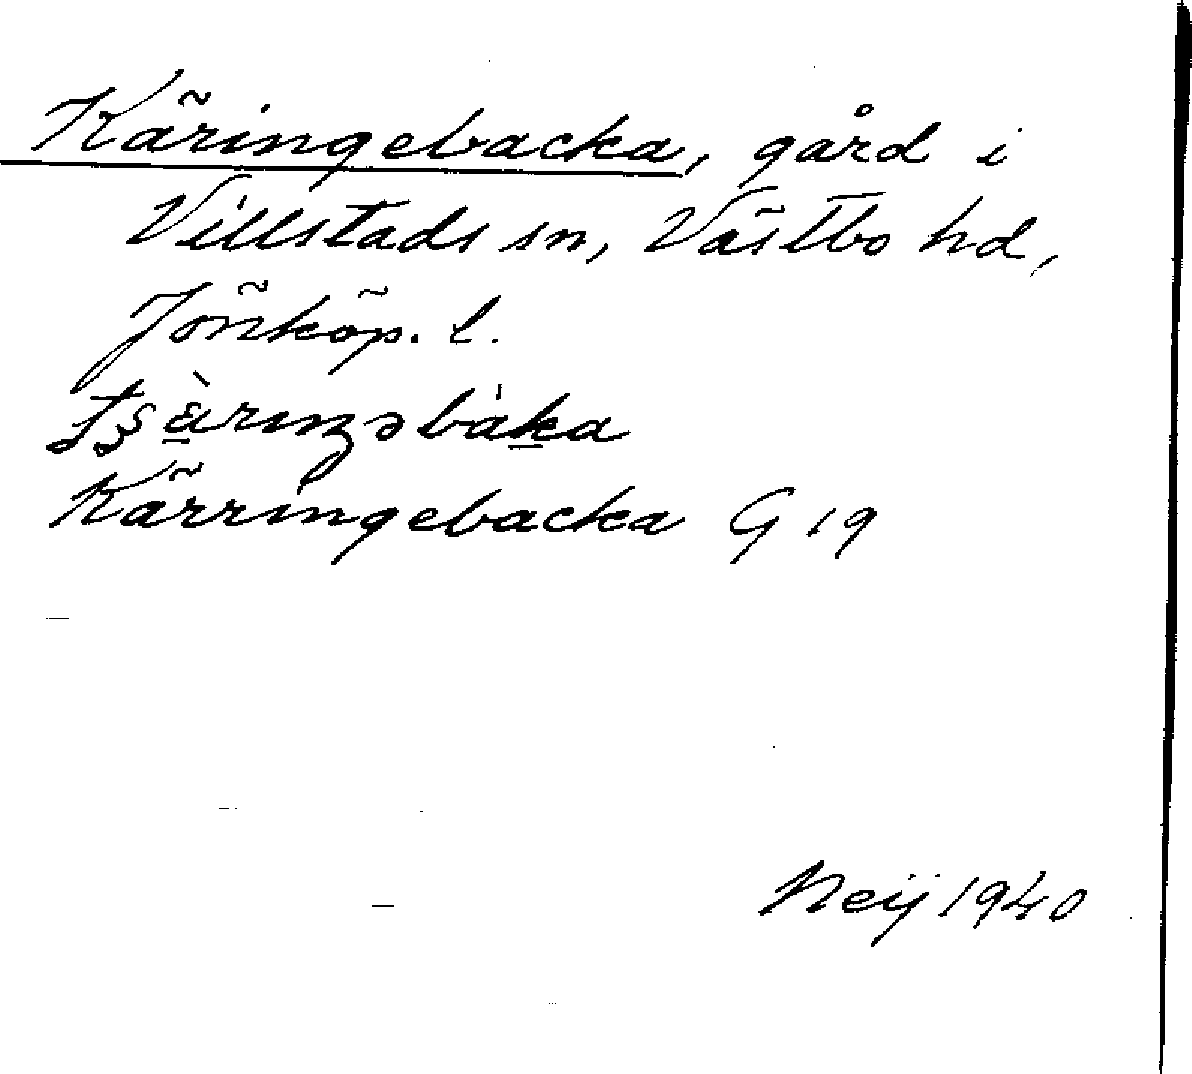 Käringebacka, gård i
Villstads sn, Västbo hd,
Jönköp. l.
Kärringebacka G 19
Neij 1940